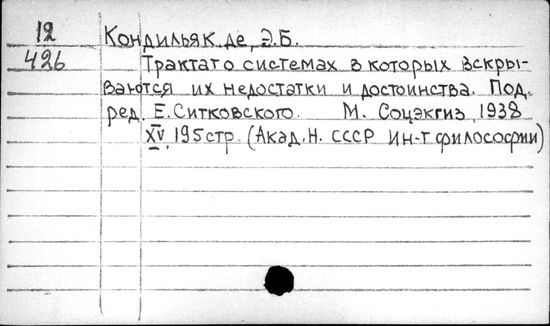 12 Кондильяк де, Э.Б.
426 Трактат о системах в которых вскры-
ваются их недостатки и достоинства. Под.
ред. Е. Ситковского. М. Соцэкгиз, 1938
XV, 195 стр. (Акад. Н. СССР Ин-т философии)